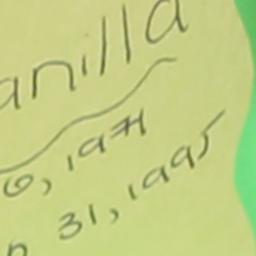 anilla
6, 1971
31, 1995